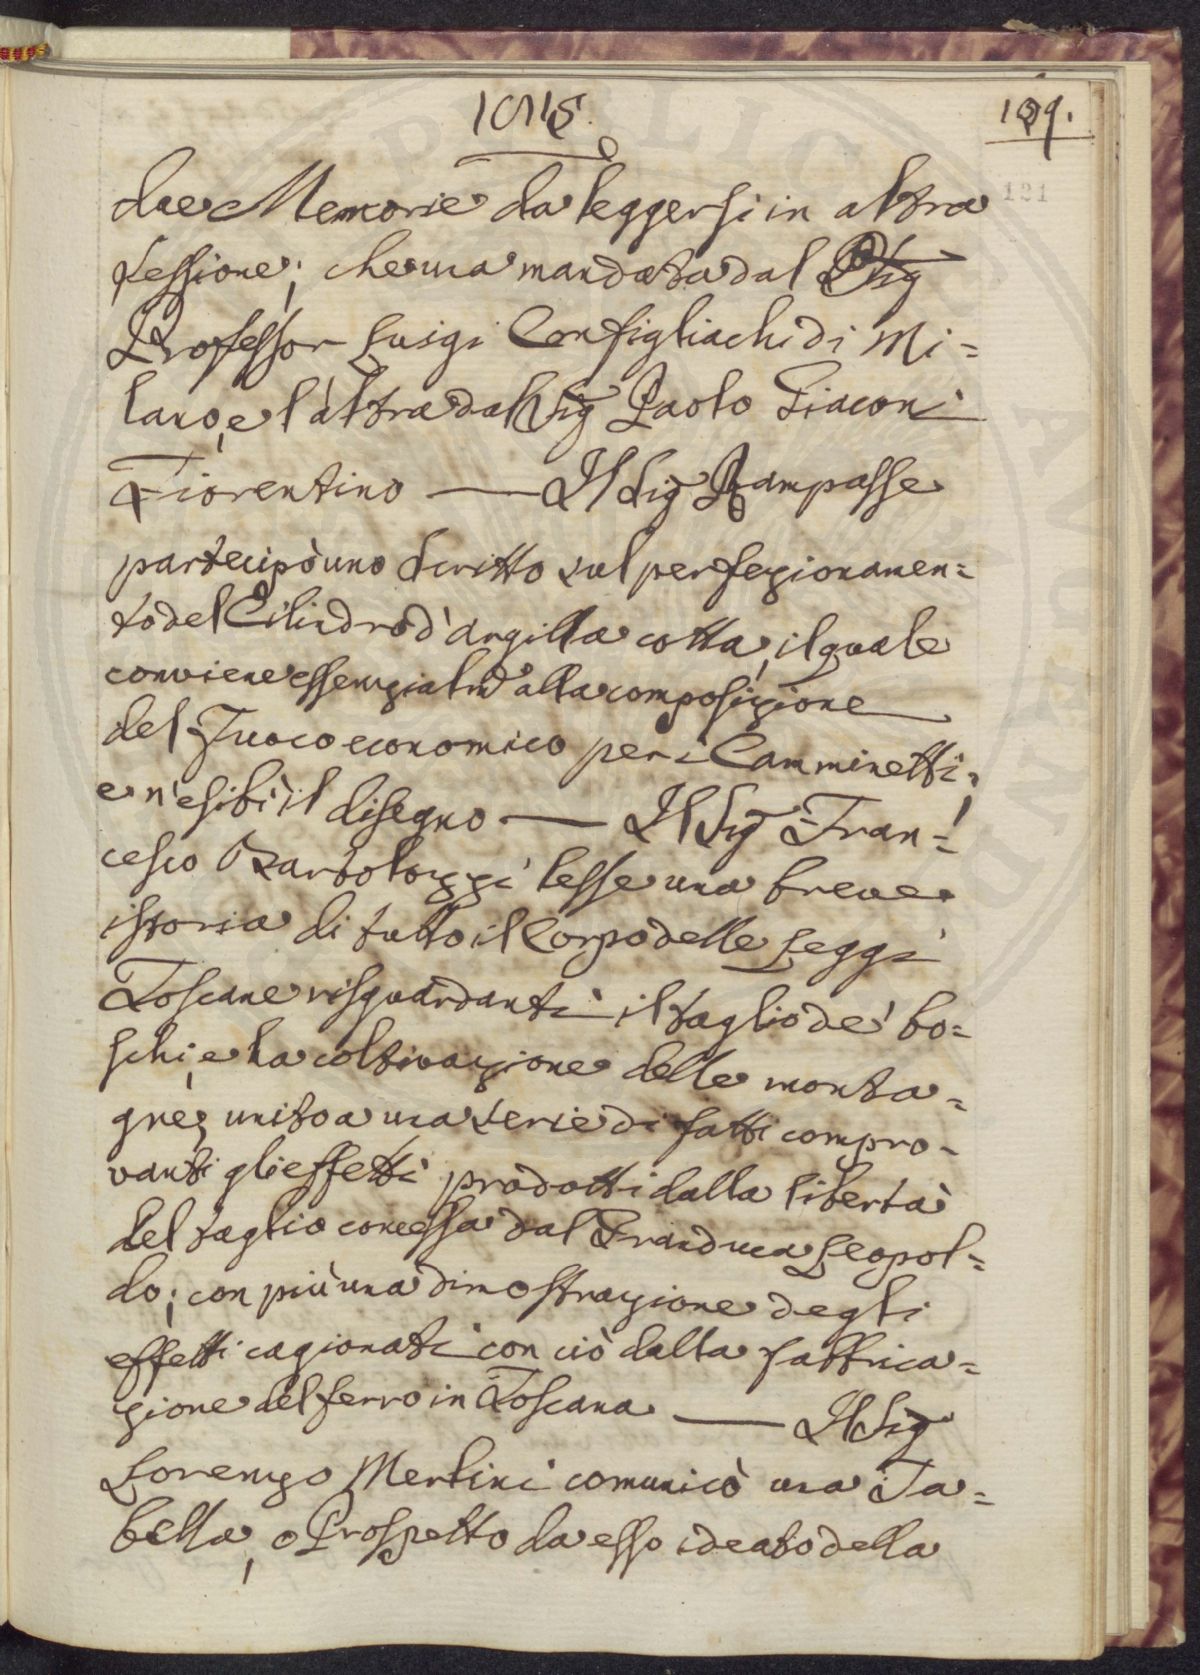 1815.
129.
121
due Memorie da leggersi in altra
sessione; che una mandata dal Sig
Professor Luigi Configliachi di Mi=
lano, e l'altra dal Sig Paolo Giaconi
Fiorentino —— Il Sig Rampasse
partecipò uno scritto sul perfezionamen=
to del Cilindro d'argilla cotta, il quale
conviene essenzialm alla composizione
del Fuoco economico per i Camminetti,
e n'esibì il disegno —— Il Sig Fran=
cesco Bartolozzi lesse una breve
istoria di tutto il Corpo delle Leggi
Toscane risguardanti il taglio de' bo=
schi, e la coltivazione delle monta=
gne, unito a una serie di fatti compro=
vanti gli effetti prodotti dalla libertà
del taglio concessa dal Granduca Leopol=
do; con più una dimostrazione degli
effetti cagionati con ciò dalla fabbrica=
zione del ferro in Toscana —— Il Sig
Lorenzo Merlini comunicò una Ta=
bella, o Prospetto da esso ideato della